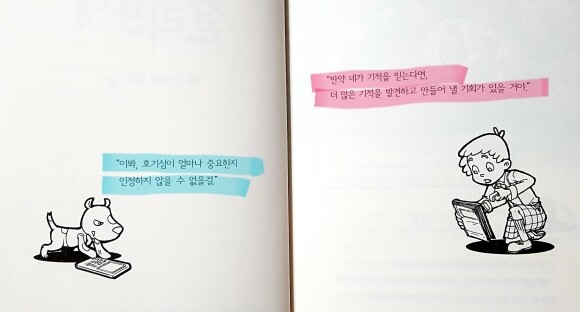 "이봐, 호기심이 얼마나 중요한지
인정하지 않을 수 없을걸."
"만약 네가 기적을 믿는다면,
더 많은 기적을 발견하고 만들어 낼 기회가 있을 거야."